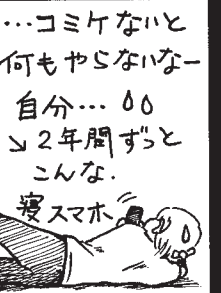 …コミケないと
何もやらないなー
自分…
↘2年間ずっと
こんな.
寝スマホ